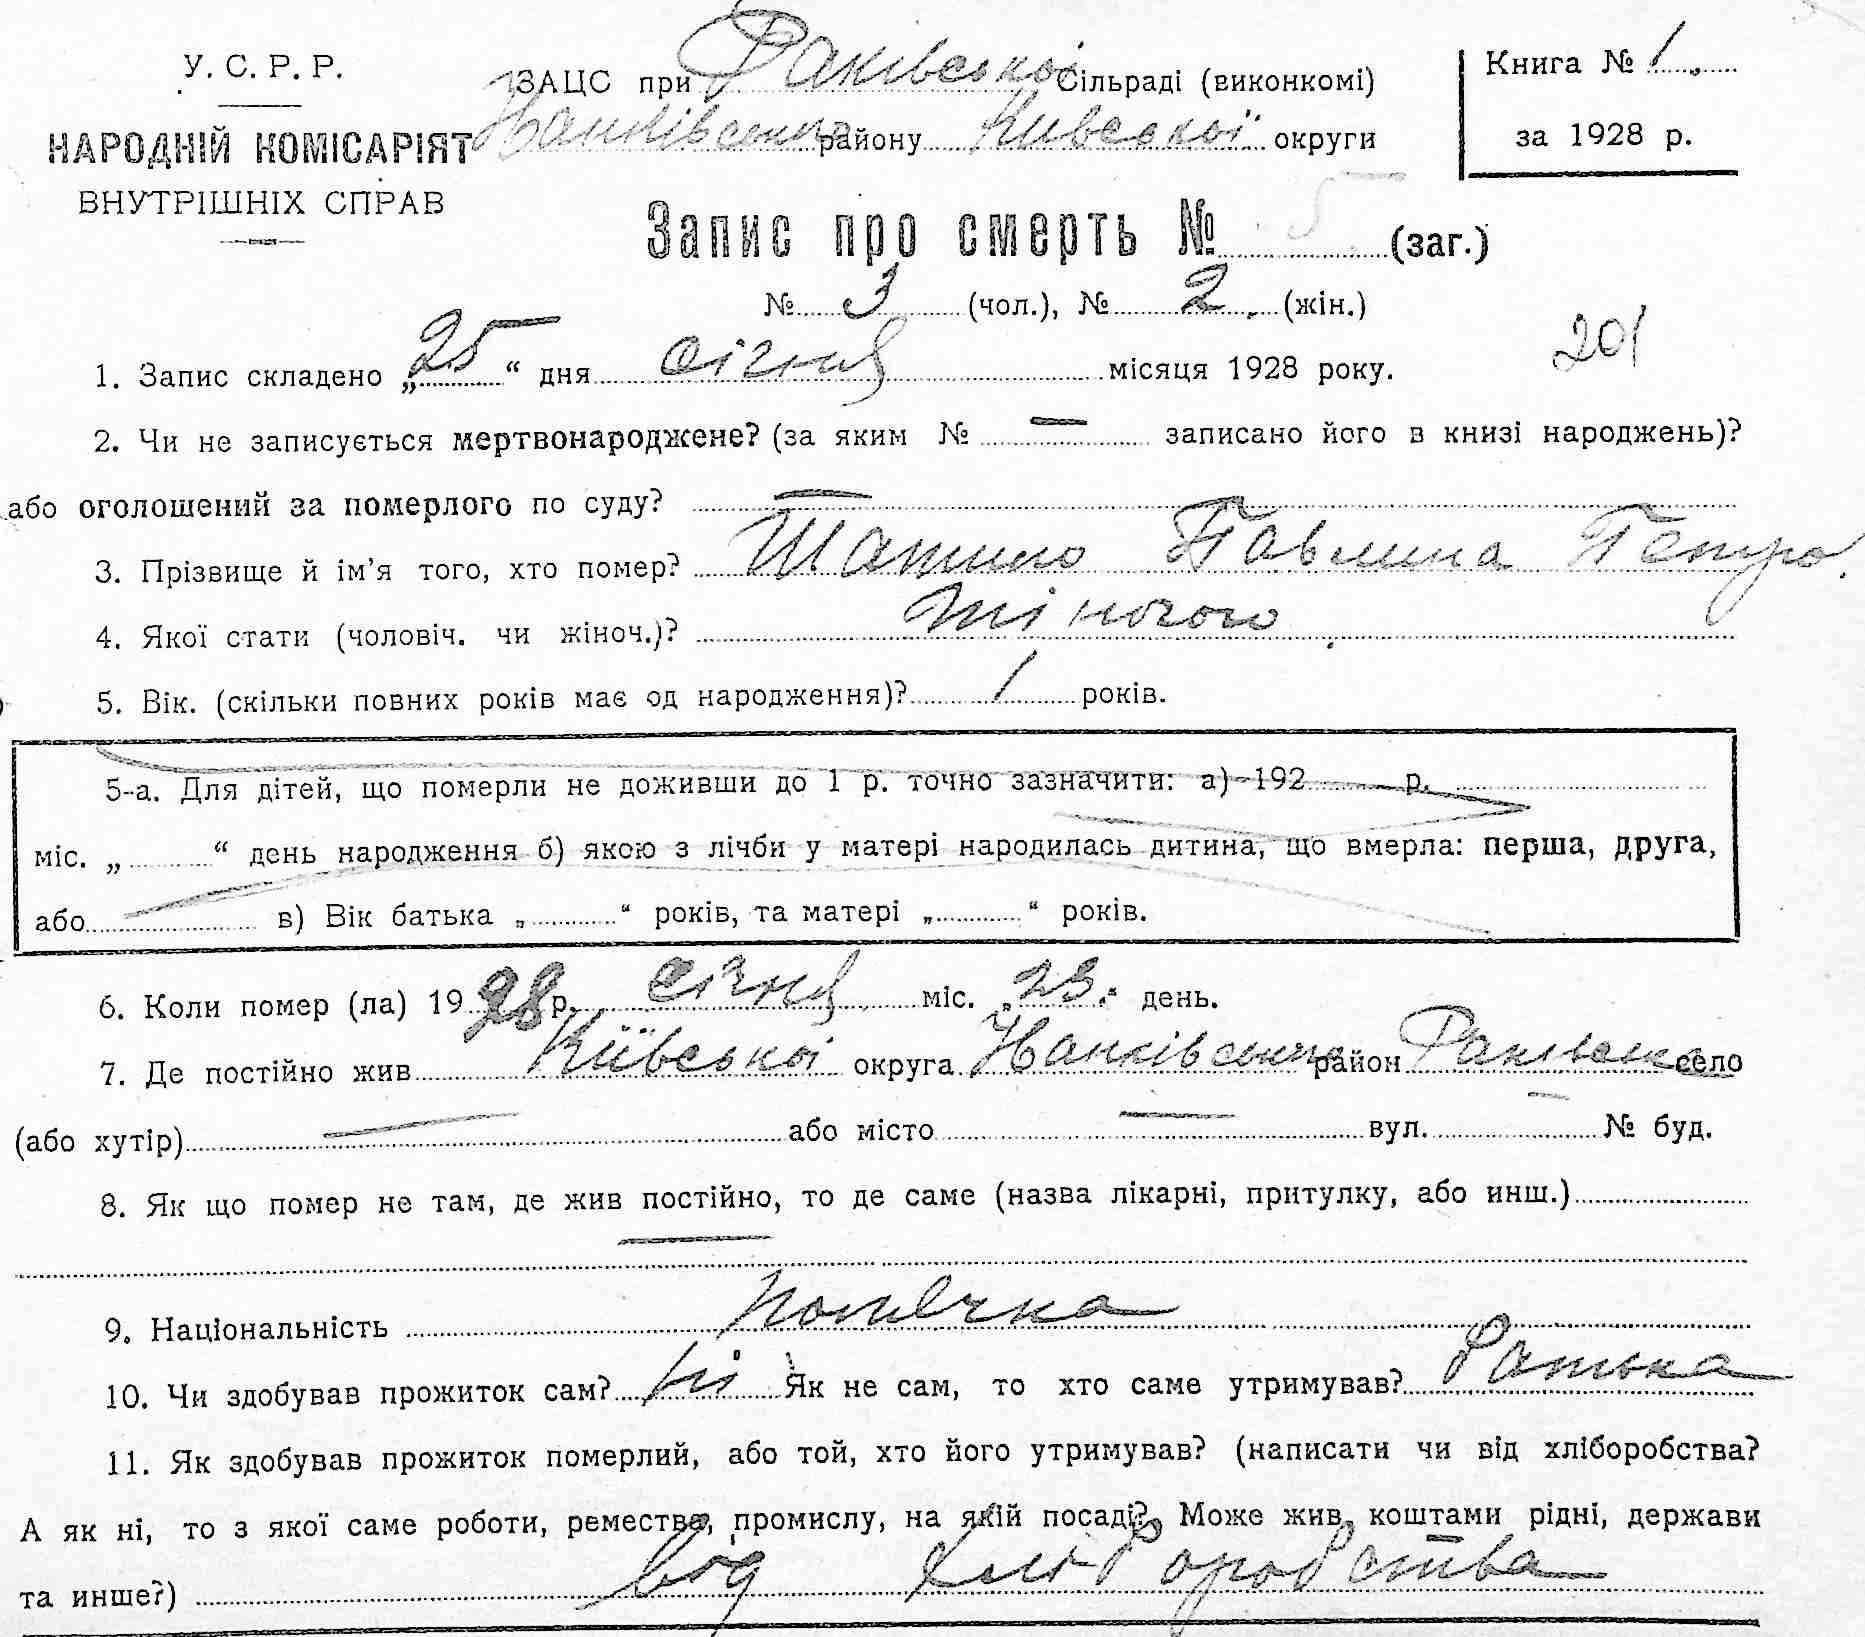 У. С. Р. Р.
НАРОДНІЙ КОМІСАРІЯТ
ВНУТРІШНІХ СПРАВ
ЗАЦС при Раківської Сільраді (виконкомі)
району Київської округи
Книга № 1.
за 1928 р.
Запис про смерть № 5 (заг.)
№ 3 (чол.), № 2. (жін.)
201
1. Запис складено „25“ дня січня місяця 1928 року.
2. Чи не записується мертвонароджене? (за яким № — записано його в книзі народжень)?
або оголошений за померлого по суду? —
3. Прізвище й ім'я того, хто помер? Шатило Павлина Петро.
4. Якої стати (чоловіч. чи жіноч.)? жіночого
5. Вік. (скільки повних років має од народження)? 1 років.
5-а. Для дітей, що померли не доживши до 1 р. точно зазначити: а) 192 р.
міс. „ “ день народження б) якою з лічби у матері народилась дитина, що вмерла: перша, друга,
або в) Вік батька „ “ років, та матері „ “ років.
6. Коли помер (ла) 1928 р. січня міс. „23.“ день.
7. Де постійно жив Київської округа район село
(або хутір) — або місто — вул. — № буд.
8. Як що помер не там, де жив постійно, то де саме (назва лікарні, притулку, або инш.)
—
9. Національність полячка
10. Чи здобував прожиток сам? ні Як не сам, то хто саме утримував? батька
11. Як здобував прожиток померлий, або той, хто його утримував? (написати чи від хліборобства?
А як ні, то з якої саме роботи, ремества, промислу, на якій посаді? Може жив коштами рідні, держави
та инше?) від хліборобства